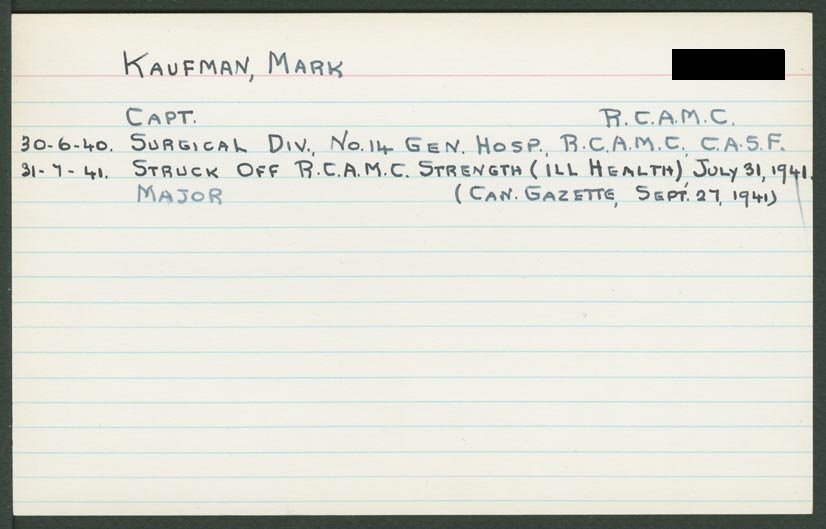 KAUFMAN, MARK
CAPT. R.C.A.M.C.
30-6-40. SURGICAL DIV., NO.14 GEN. HOSP., R.C.A.M.C. C.A.S.F.
31-7-41. STRUCK OFF R.C.A.M.C. STRENGTH (ILL HEALTH) JULY 31, 1941.
MAJOR (CAN. GAZETTE, SEPT. 27, 1941)